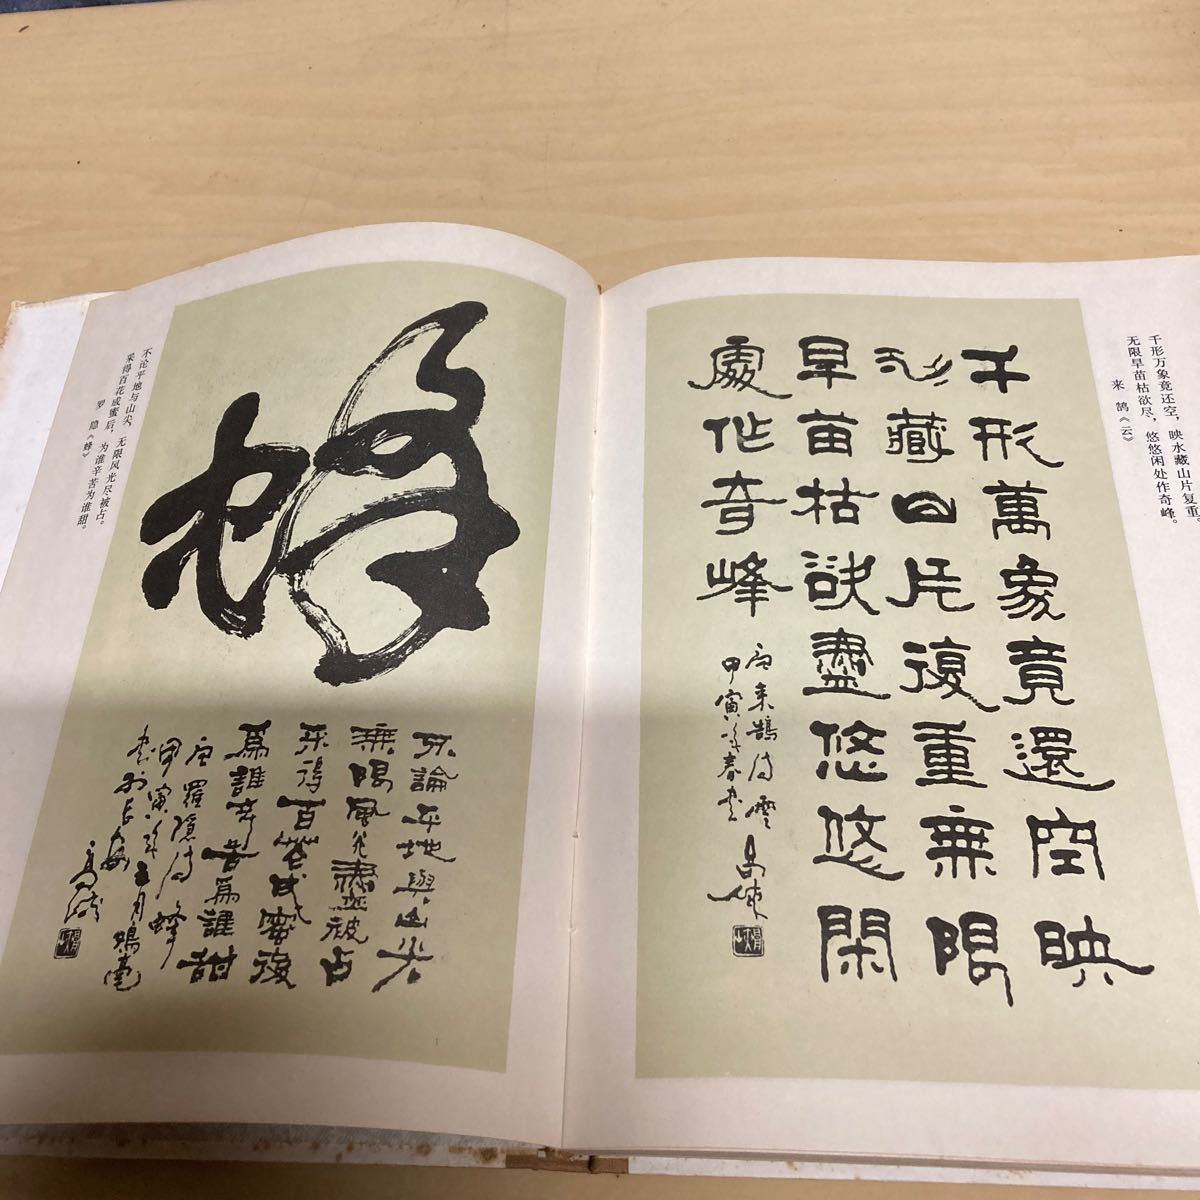 千形万象竟还空，映水藏山片复重。
无限旱苗枯欲尽，悠悠闲处作奇峰。
来鹄《云》
千形萬象竟還空映
水藏山片復重無限
旱苗枯欲盡悠悠閑
處作奇峰
唐來鵠詩雲
甲寅年春書
蜂
不論平地與山尖
無限風光盡被占
采得百花成蜜後
爲誰辛苦爲誰甜
唐羅隱詩蜂
甲寅年五月
書於長安
不论平地与山尖，无限风光尽被占。
采得百花成蜜后，为谁辛苦为谁甜。
罗隐《蜂》